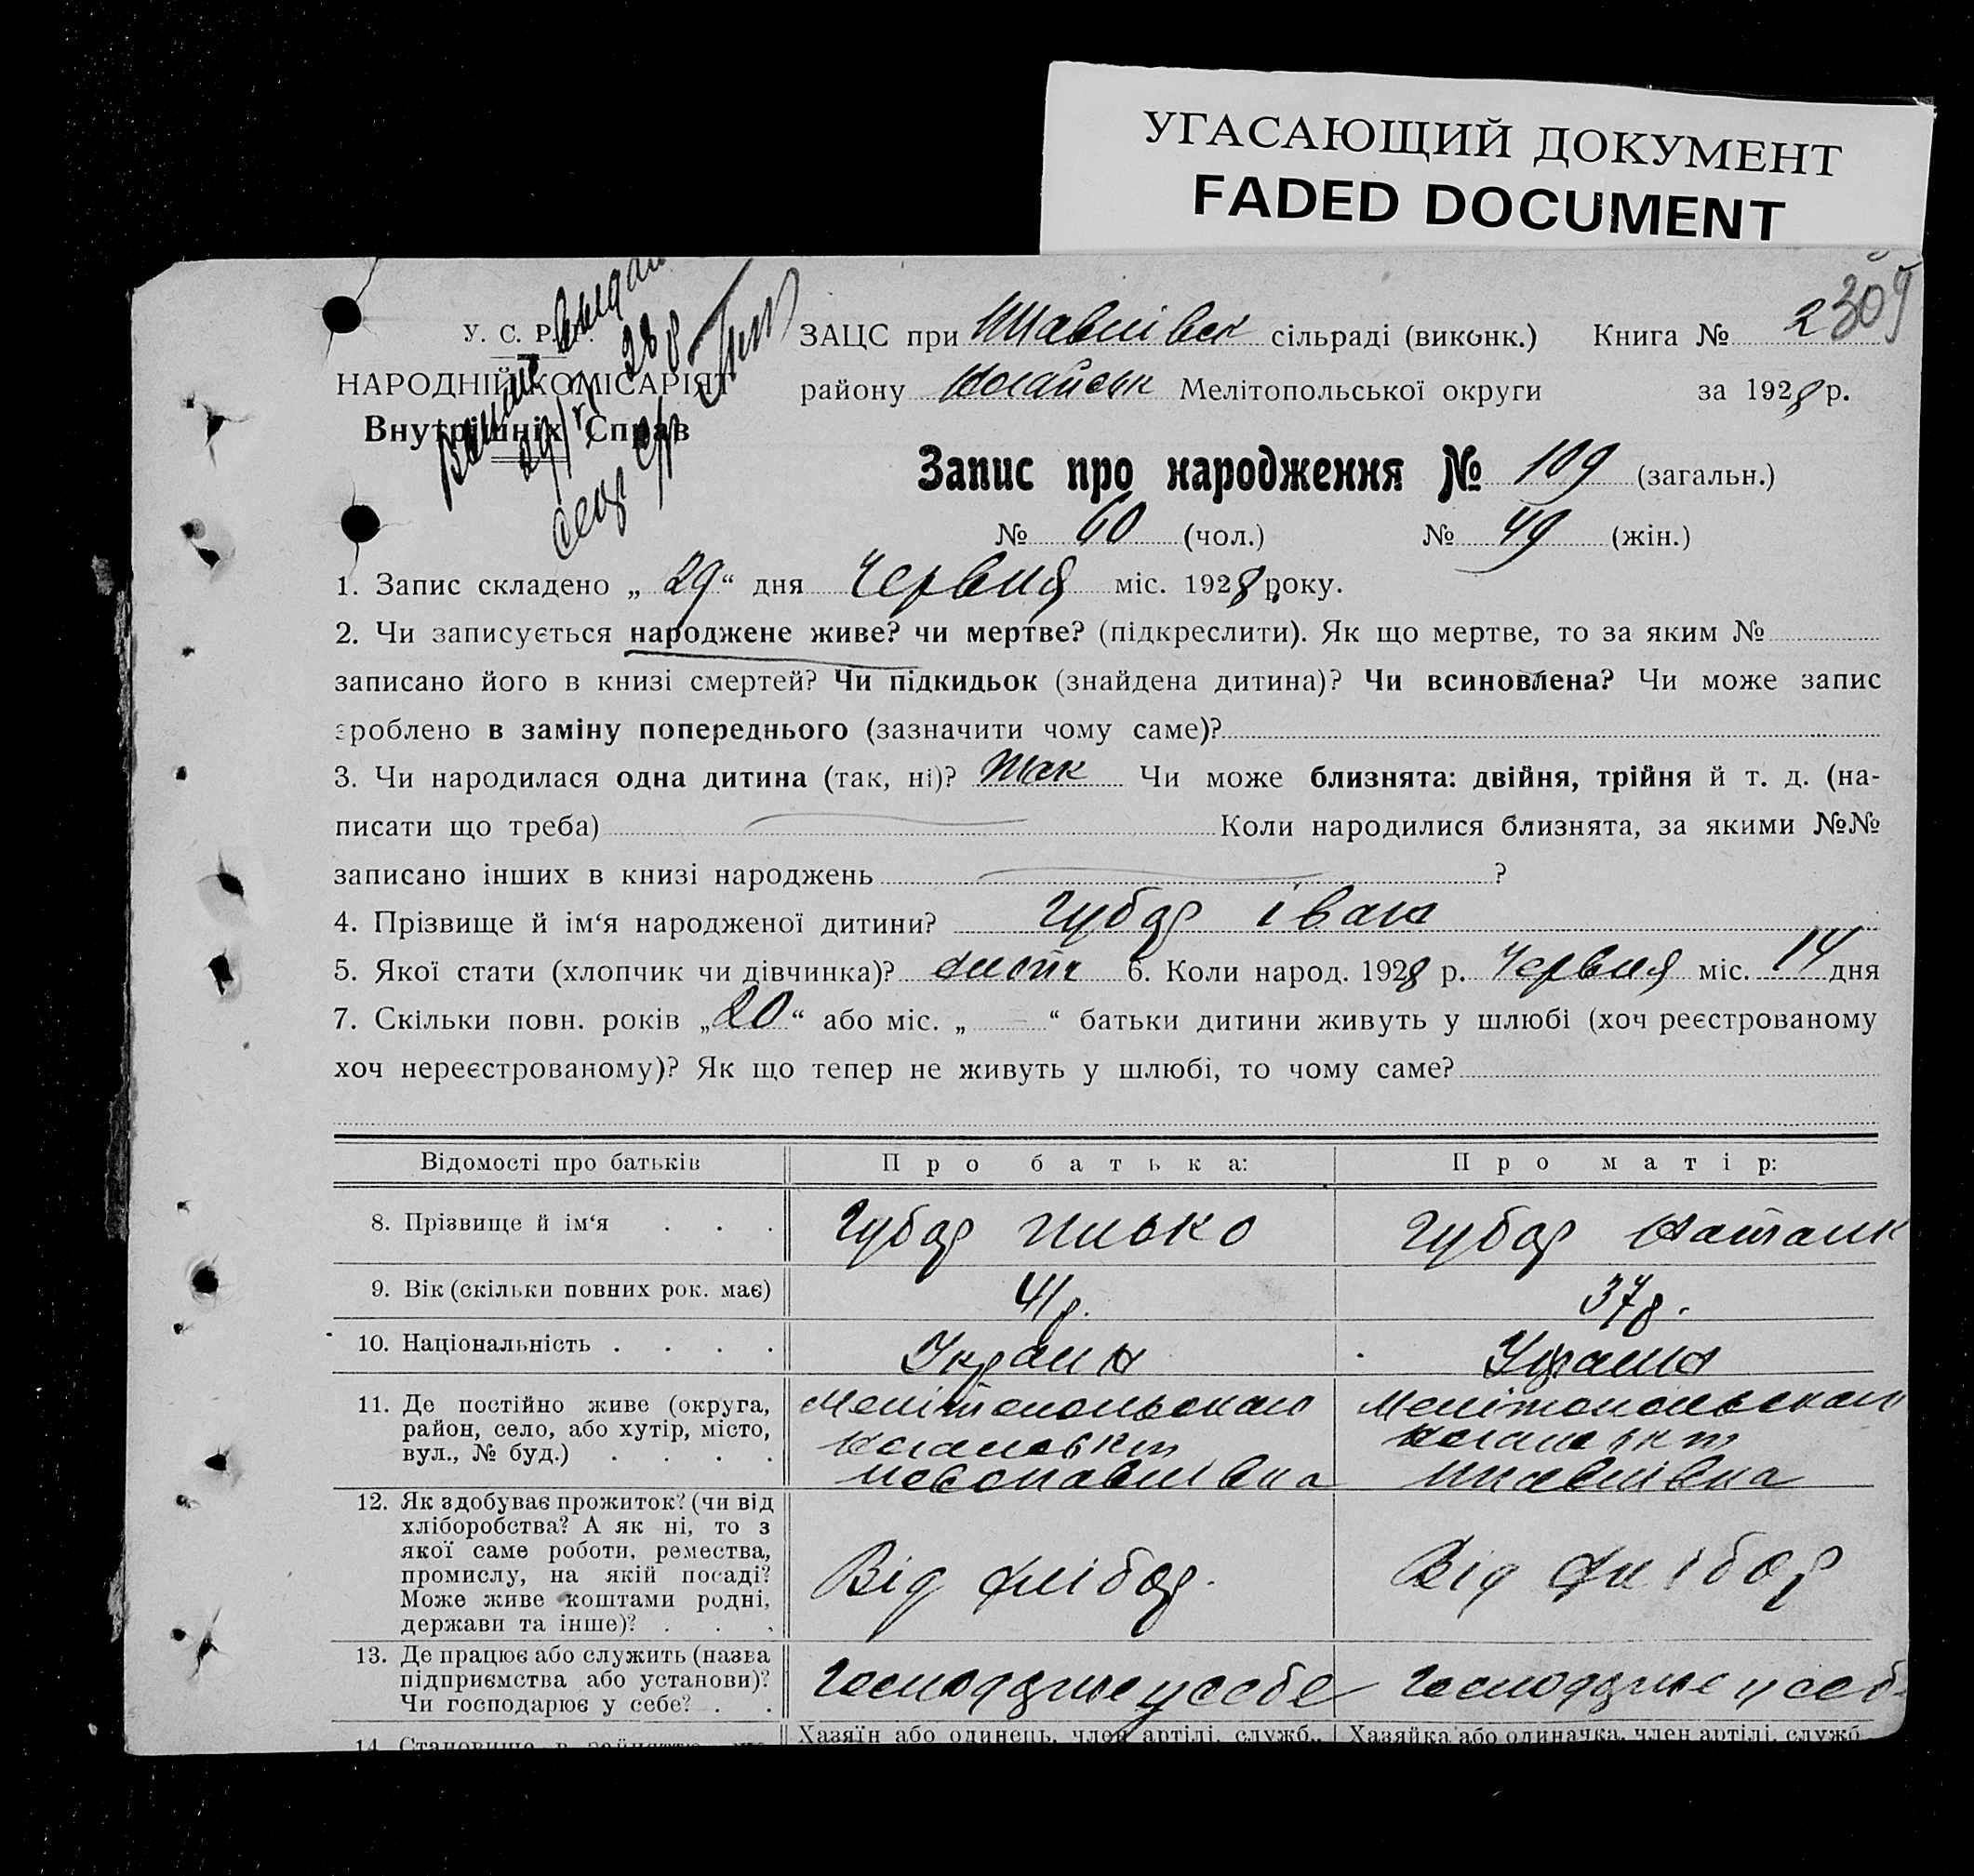 УГАСАЮЩИЙ ДОКУМЕНТ
FADED DOCUMENT
309
У. С. Р. Р.
НАРОДНІЙ КОМІСАРІЯТ
Внутрішніх Справ
ЗАЦС при сільраді (виконк.) Книга № 2
району Ногайськ Мелітопольської округи за 1928 р.
Запис про народження № 109 (загальн.)
№ 60 (чол.) № 49 (жін.)
1. Запис складено „29“ дня Червня міс. 1928 року.
2. Чи записується народжене живе? чи мертве? (підкреслити). Як що мертве, то за яким №
записано його в книзі смертей? Чи підкидьок (знайдена дитина)? Чи всиновлена? Чи може запис
зроблено в заміну попереднього (зазначити чому саме)?
3. Чи народилася одна дитина (так, ні)? Так Чи може близнята: двійня, трійня й т. д. (на-
писати що треба) Коли народилися близнята, за якими №№
записано інших в книзі народжень ?
4. Прізвище й ім‘я народженої дитини? Губар Іван
5. Якої стати (хлопчик чи дівчинка)? 6. Коли народ. 1928 р. Червня міс. 14 дня
7. Скільки повн. років „20“ або міс. „ — “ батьки дитини живуть у шлюбі (хоч реєстрованому
хоч нереєстрованому)? Як що тепер не живуть у шлюбі, то чому саме?
Відомості про батьків Про батька: Про матір:
8. Прізвище й ім‘я . . . Губар Илько Губар
9. Вік (скільки повних рок. має) 41 р. 37 р.
10. Національність . . . . Украин Украин
11. Де постійно живе (округа,
район, село, або хутір, місто,
вул., № буд.) . . . .
Мелітопольская
Ногайськ
Новопавлівка
Мелітопольская
Ногайськ
12. Як здобуває прожиток? (чи від
хліборобства? А як ні, то з
якої саме роботи, ремества,
промислу, на якій посаді?
Може живе коштами родні,
держави та інше)? . . .
Від хлібор.
Від хлібор
13. Де працює або служить (назва
підприємства або установи)?
Чи господарює у себе? . .
Господарює у себе
Господарює у себе
14. Становище в
Хазяїн або одинець, член артілі, служб., Хазяйка або одиначка, член артілі, служб.